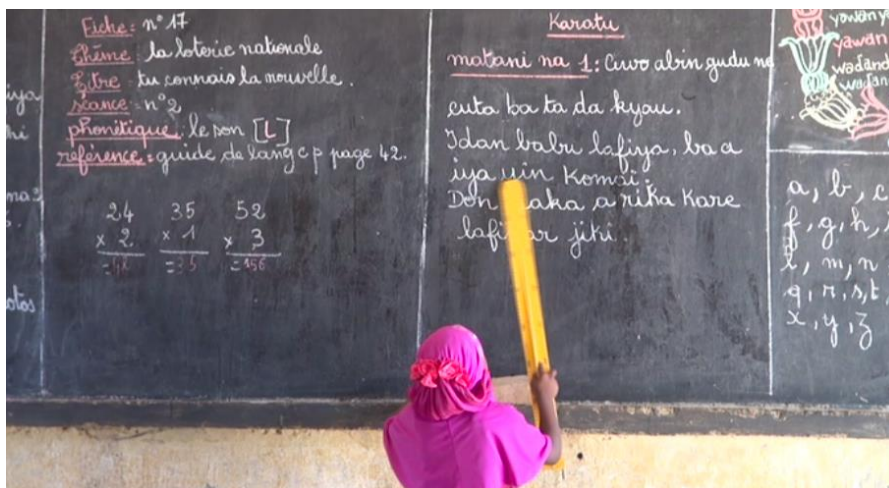 iya
hi
na?
otos
Fiche: n° 17
thème: la loterie nationale
Titre: tu connais la nouvelle.
séance: n° 2
phonétique: le son [l]
référence: guide de lang cp page 42.
24 35 52
× 2 × 1 × 3
=48 =35 =156
Karatu
matani na 1: Ciwo abin gudu ne
cuta ba ta da kyau.
Idan babu lafiya, ba a
iya yin komai.
Don a rika kare
jiki.
yawan
wadan
a, b, c
f, g, h,
l, m, n
q, r, s, t
x, y, z